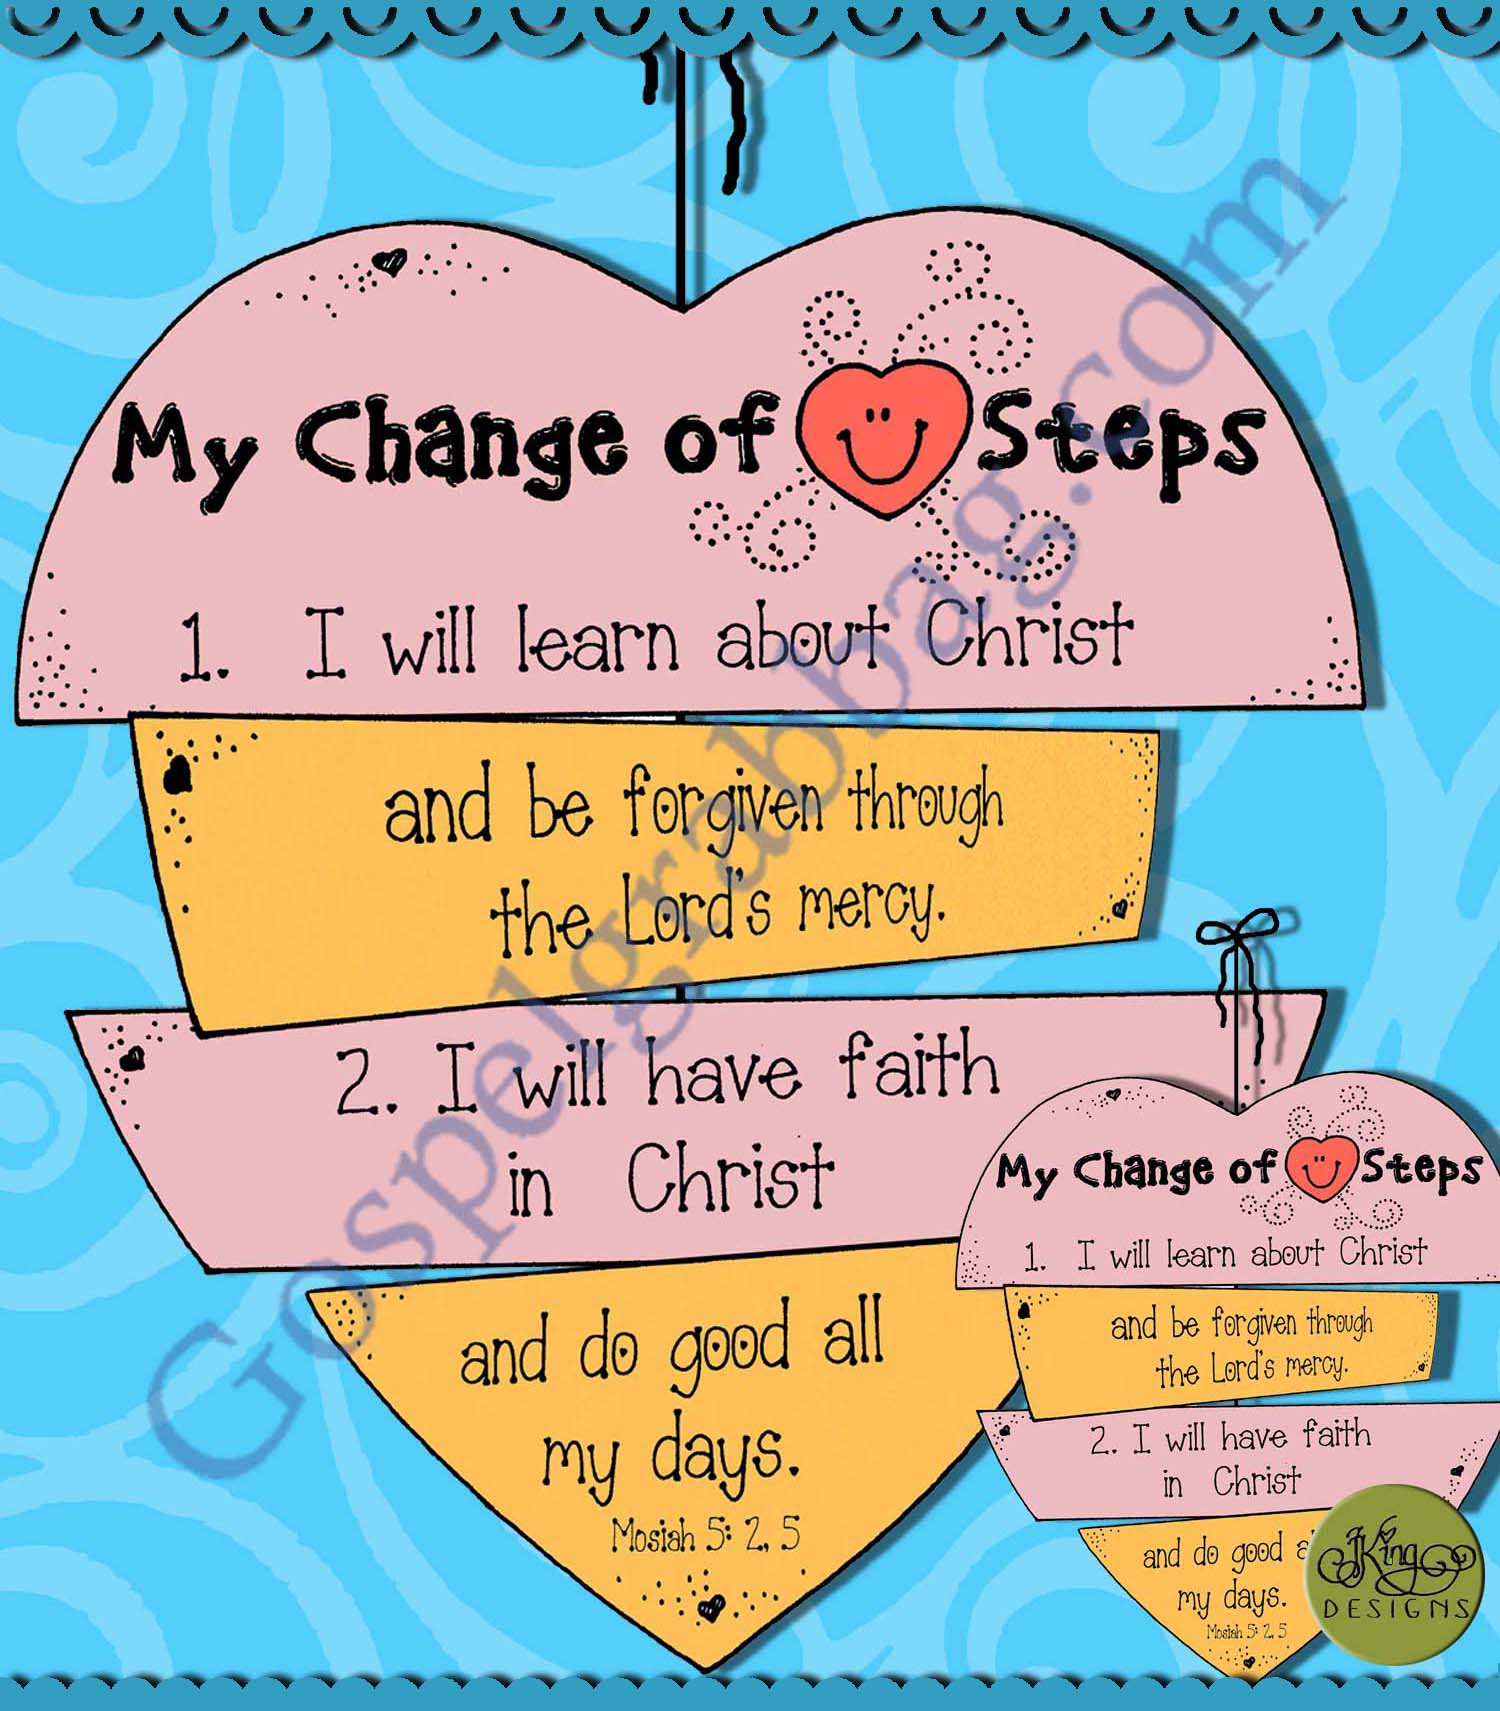 My Change of Steps
1. I will learn about Christ
and be forgiven through
the Lord's mercy.
2. I will have faith
in Christ
and do good all
my days.
Mosiah 5: 2, 5
Gospelgrabbag.com
My Change of Steps
1. I will learn about Christ
and be forgiven through
the Lord's mercy.
2. I will have faith
in Christ
and do good a
my days.
Mosiah 5: 2, 5
JKing
DESIGNS